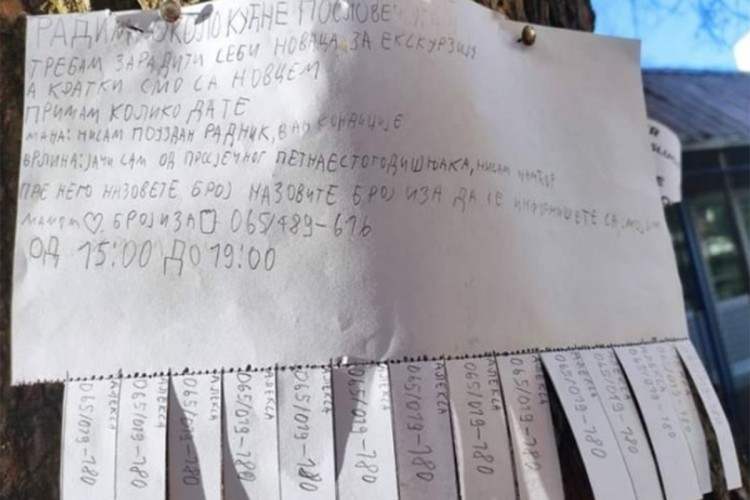 РАДИМ ОКОЛО КУЋНЕ ПОСЛОВЕ
ТРЕБАМ ЗАРАДИТИ СЕБИ НОВАЦА ЗА ЕКСКУРЗИЈУ
А КРАТКИ СМО СА НОВЦЕМ
ПРИМАМ КОЛИКО ДАТЕ
МАНА: НИСАМ ПОУЗДАН РАДНИК, ВАН КОНДИЦИЈЕ
ВРЛИНА: ЈАЧИ САМ ОД ПРОСЈЕЧНОГ ПЕТНАЕСТОГОДИШЊАКА, НИСАМ
ПРЕ НЕГО НАЗОВЕТЕ БРОЈ НАЗОВИТЕ БРОЈ ИЗА ДА СЕ ИНФОРМИШЕТЕ СА
МАМОМ ♡ БРОЈ ИЗА 065/489-616
ОД 15:00 ДО 19:00
АЛЕКСА
065/019-780
АЛЕКСА
065/019-780
АЛЕКСА
065/019-780
АЛЕКСА
065/019-780
АЛЕКСА
065/019-780
АЛЕКСА
065/019-780
АЛЕКСА
065/019-780
АЛЕКСА
065/019-780
АЛЕКСА
065/019-780
АЛЕКСА
065/019-780